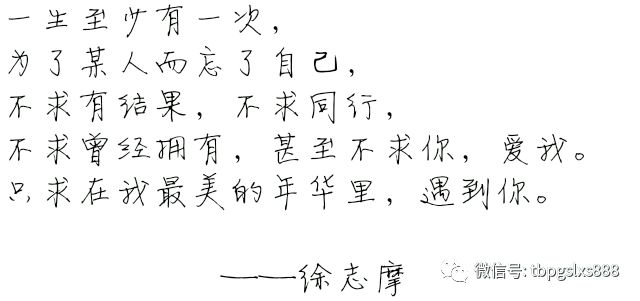 一生至少有一次，
为了某人而忘了自己，
不求有结果，不求同行，
不求曾经拥有，甚至不求你，爱我。
只求在我最美的年华里，遇到你。
——徐志摩
微信号: tbpgslxs888